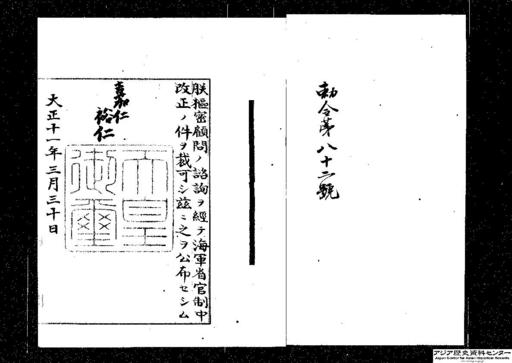 勅令第八十二號
朕樞密顧問ノ諮詢ヲ經テ海軍省官制中
改正ノ件ヲ裁可シ茲ニ之ヲ公布セシム
嘉仁
裕仁
天皇
御璽
大正十一年三月三十日
アジア歴史資料センター
Japan Center for Asian Historical Records